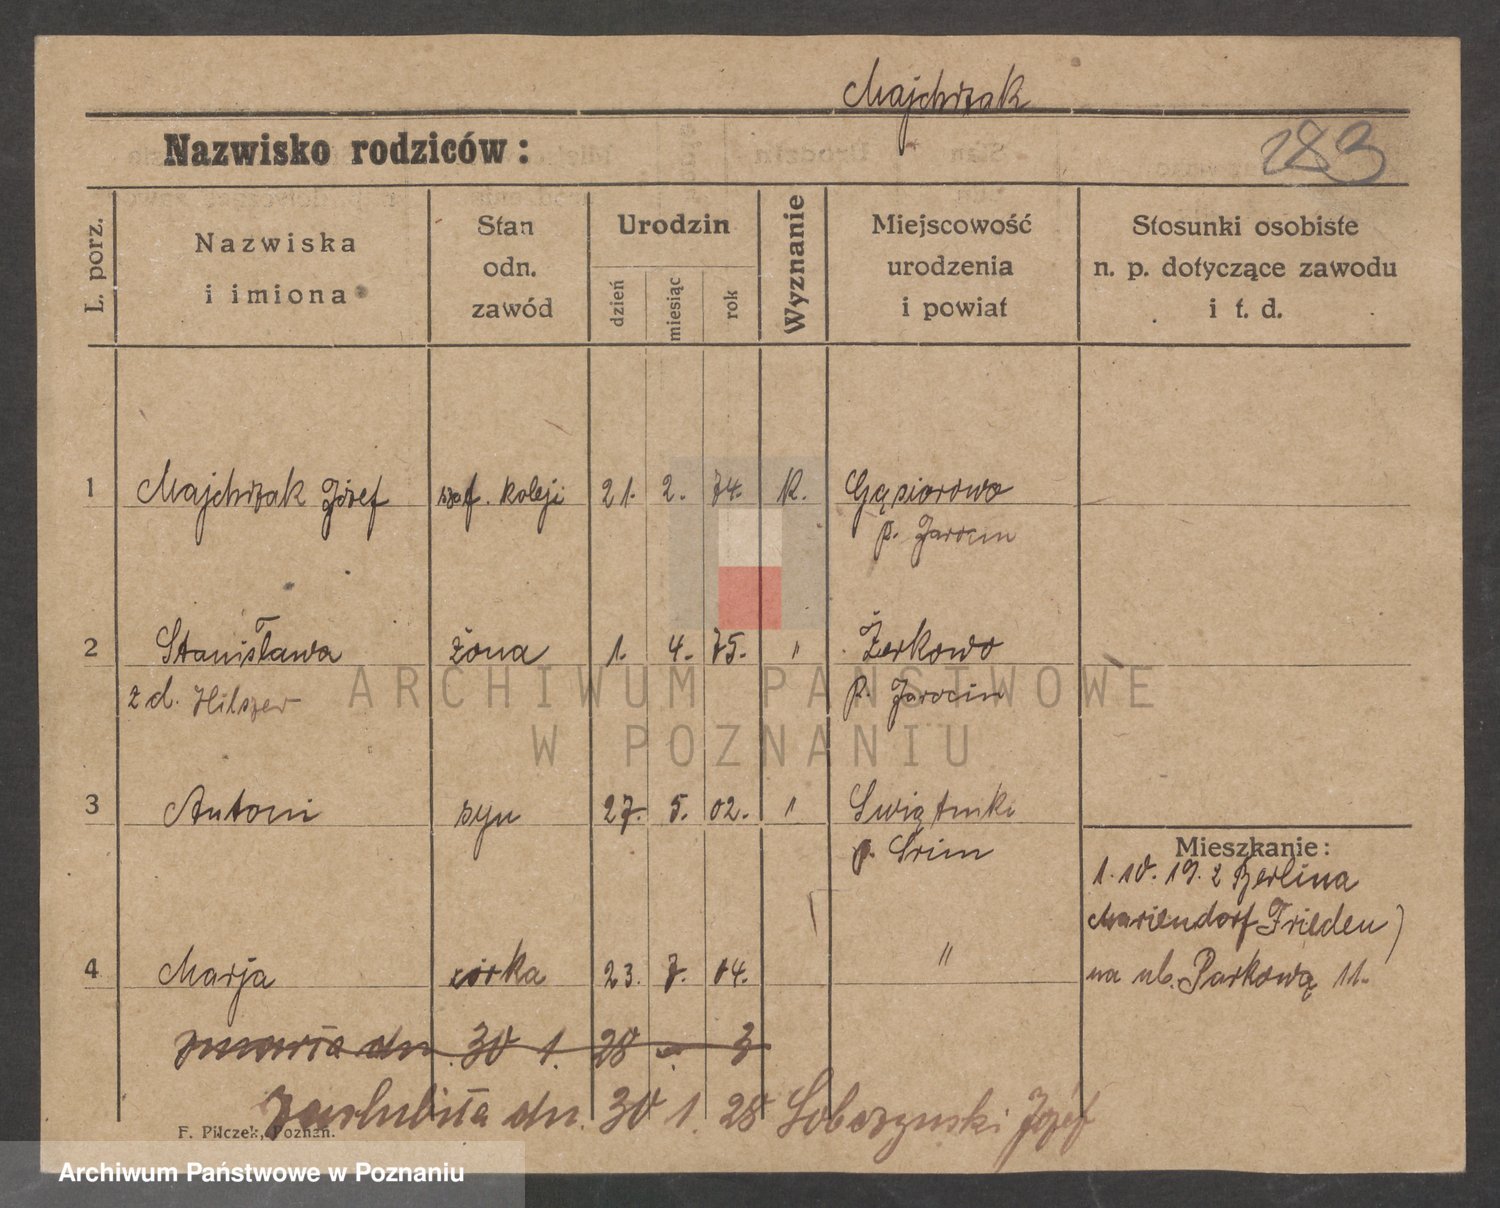 Majchrzak
Nazwisko rodziców:
283
L. porz.
Nazwiska
i imiona
Stan
odn.
zawód
Urodzin
dzień
miesiąc
rok
Wyznanie
Miejscowość
urodzenia
i powiat
Stosunki osobiste
n. p. dotyczące zawodu
i t. d.
1 Majchrzak Józef szaf. koleji 21. 2. 74. K. Gąsiorowo
p. Jarocin
2 Stanisława żona 1. 4. 75. " Żerkowo
z d. Hilszer p. Jarocin
ARCHIWUM PAŃSTWOWE
W POZNANIU
3 Antoni syn 27. 5. 02. " Swiątniki
p. Śrim
Mieszkanie:
1. 10. 19. z Berlina
Mariendorf Frieden)
na ul. Parkową 11.
4 Marja córka 23. 7. 04. "
zmarła dn. 30 1. 28 - 3
zaślubiła dn. 30 1. 28 Sobczynski Józef
F. Pilczek, Poznań.
Archiwum Państwowe w Poznaniu